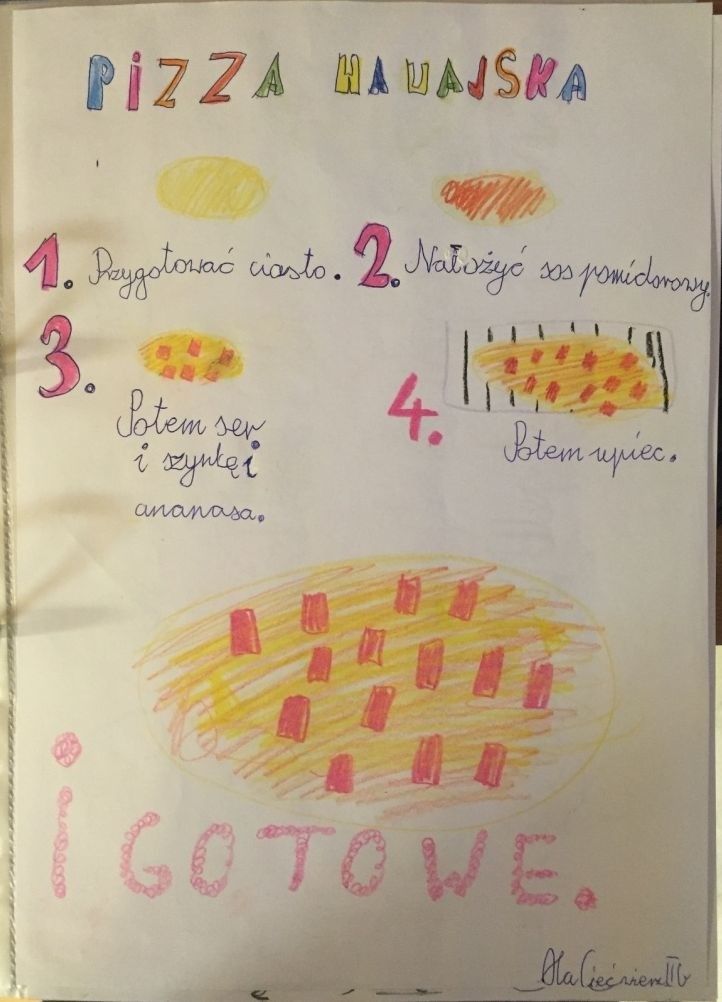 PIZZA HAWAJSKA
1. Przygotować ciasto. 2. Nałożyć sos pomidorowy.
3. Potem ser
i szynkę i
ananasa.
4. Potem upiec.
i GOTOWE.
Ala IIb